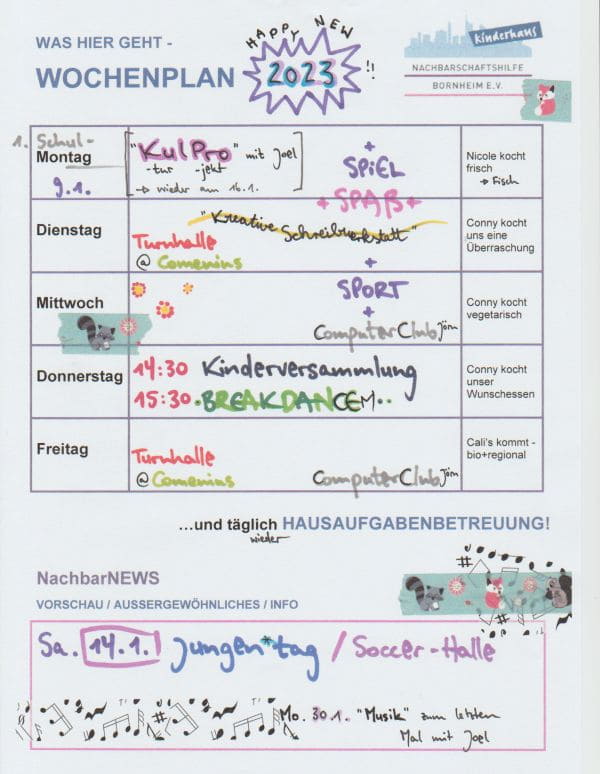 HAPPY NEW
WAS HIER GEHT -
WOCHENPLAN
2023!!
kinderhaus
NACHBARSCHAFTSHILFE
BORNHEIM E.V.
1. Schul-
Montag
9.1.
["KulPro" mit Joel
-tur -jekt
→ wieder am 16.1.]
+
SPiEL
+ SPAß +
Nicole kocht
frisch
→ Fisch
Dienstag
"Kreative Schreibwerkstatt"
Turnhalle
@ Comenius
+
Conny kocht
uns eine
Überraschung
Mittwoch
SPORT
+
ComputerClub Jörn
Conny kocht
vegetarisch
Donnerstag
14:30 Kinderversammlung
15:30 •BREAKDANCEM..
Conny kocht
unser
Wunschessen
Freitag
Turnhalle
@ Comenius
ComputerClub Jörn
Cali's kommt -
bio+regional
...und täglich HAUSAUFGABENBETREUUNG!
wieder
NachbarNEWS
VORSCHAU / AUSSERGEWÖHNLICHES / INFO
Sa. 14.1. Jungen*tag / Soccer-Halle
Mo. 30.1. "Musik" zum letzten
Mal mit Joel